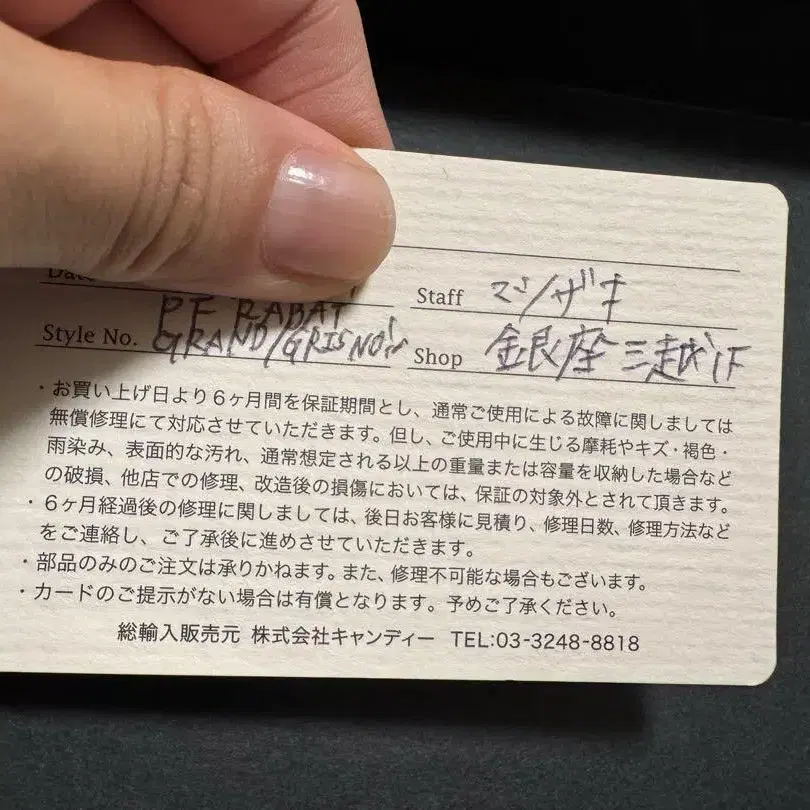 Date
Staff マノザキ
Style No. PF RABAT
GRAND/GRIS NOIR
Shop 金銀座 三越 1F
・お買い上げ日より6ヶ月間を保証期間とし、通常ご使用による故障に関しましては
無償修理にて対応させていただきます。但し、ご使用中に生じる摩耗やキズ・褐色・
雨染み、表面的な汚れ、通常想定される以上の重量または容量を収納した場合など
の破損、他店での修理、改造後の損傷においては、保証の対象外とされて頂きます。
・6ヶ月経過後の修理に関しましては、後日お客様に見積り、修理日数、修理方法など
をご連絡し、ご了承後に進めさせていただきます。
・部品のみのご注文は承りかねます。また、修理不可能な場合もございます。
・カードのご提示がない場合は有償となります。予めご了承ください。
総輸入販売元 株式会社キャンディー TEL:03-3248-8818